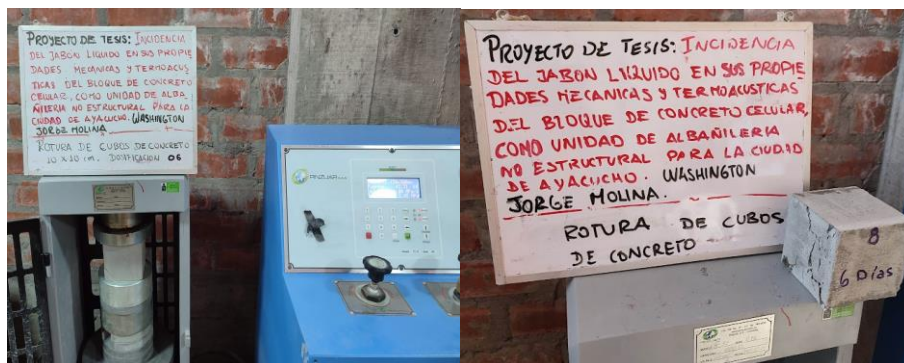 PROYECTO DE TESIS: INCIDENCIA
DEL JABON LIQUIDO EN SUS PROPIE
DADES MECANICAS Y TERMOACUS
TICAS DEL BLOQUE DE CONCRETO
CELULAR, COMO UNIDAD DE ALBA
ÑILERIA NO ESTRUCTURAL PARA LA
CIUDAD DE AYACUCHO. WASHINGTON
JORGE MOLINA
ROTURA DE CUBOS DE CONCRETO
10 X 10 cm. DOSIFICACION 06
PINZUAR
PROYECTO DE TESIS: INCIDENCIA
DEL JABON LIQUIDO EN SUS PROPIE
DADES MECANICAS Y TERMOACUSTICAS
DEL BLOQUE DE CONCRETO CELULAR,
COMO UNIDAD DE ALBAÑILERIA
NO ESTRUCTURAL PARA LA CIUDAD
DE AYACUCHO. WASHINGTON
JORGE MOLINA.
ROTURA DE CUBOS
DE CONCRETO
8
6 Días